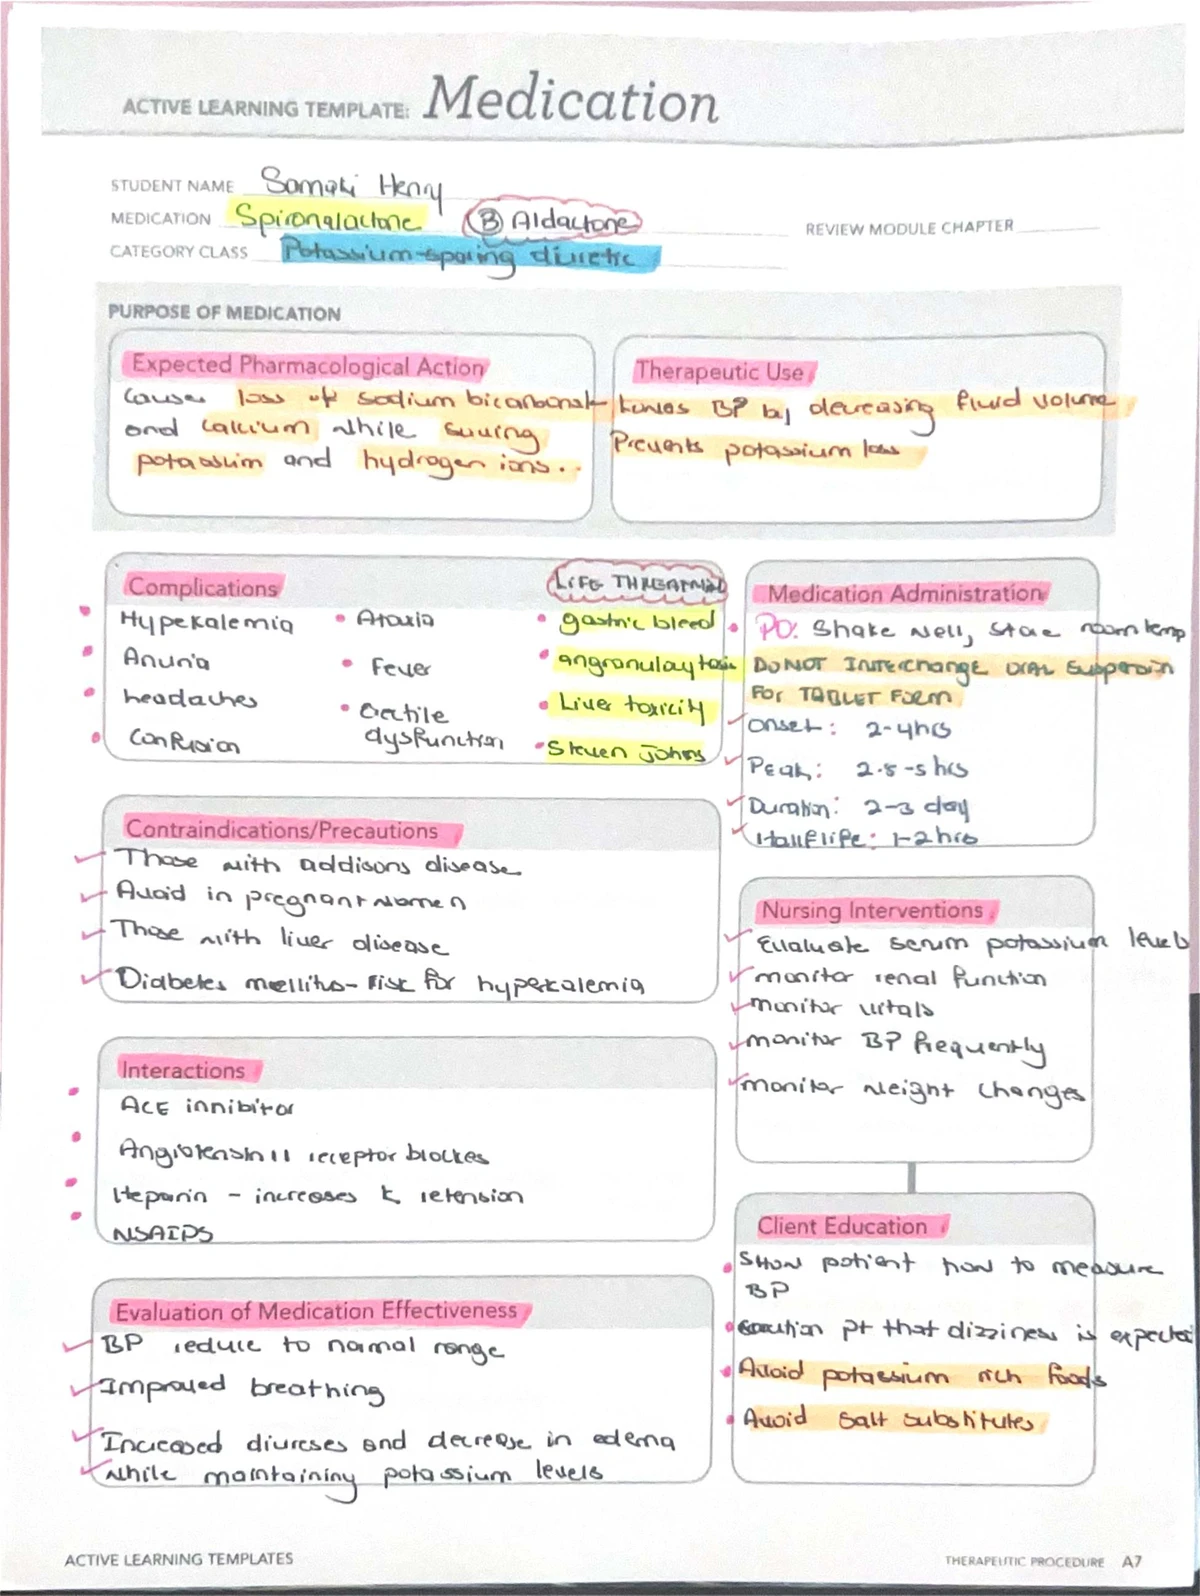 ACTIVE LEARNING TEMPLATE: Medication
STUDENT NAME Henry
MEDICATION Spironalactone (B) Aldactone
REVIEW MODULE CHAPTER
CATEGORY CLASS Potassium-sparing diuretic
PURPOSE OF MEDICATION
Expected Pharmacological Action
Causes loss of sodium bicarbonate
and calcium while saving
potassium and hydrogen ions..
Therapeutic Use
Lowers BP by decreasing fluid volume
Prevents potassium loss
Complications
LIFE
Hypekalemia
Anuria
headaches
Confusion
Ataxia
Fever
Erectile
dysfunction
gastric bleed
angranulaytosis
Liver toxicity
Steven Johns
Medication Administration
PO: Shake well, store room temp
DO NOT INTERCHANGE ORAL SUSPENSION
FOR TABLET FORM
Onset: 2-4hrs
Peak: 2.5-5 hrs
Duration: 2-3 day
Half life: 1-2hrs
Contraindications/Precautions
Those with addisons disease
Avoid in pregnant women
Those with liver disease
Diabetes mellitus-risk for hyperkalemia
Nursing Interventions
Evaluate serum potassium levels
monitor renal function
monitor vitals
monitor BP frequently
monitor weight changes
Interactions
ACE innibitor
Angiotensin II receptor blockes
Heparin - increases K retension
NSAIDS
Client Education
Show patient how to measure
BP
caution pt that dizziness is expected
Avoid potassium rich foods
Avoid salt substitutes
Evaluation of Medication Effectiveness
BP reduce to normal range
Improved breathing
Increased diureses and decrease in edema
while maintaining potassium levels
ACTIVE LEARNING TEMPLATES
THERAPEUTIC PROCEDURE A7